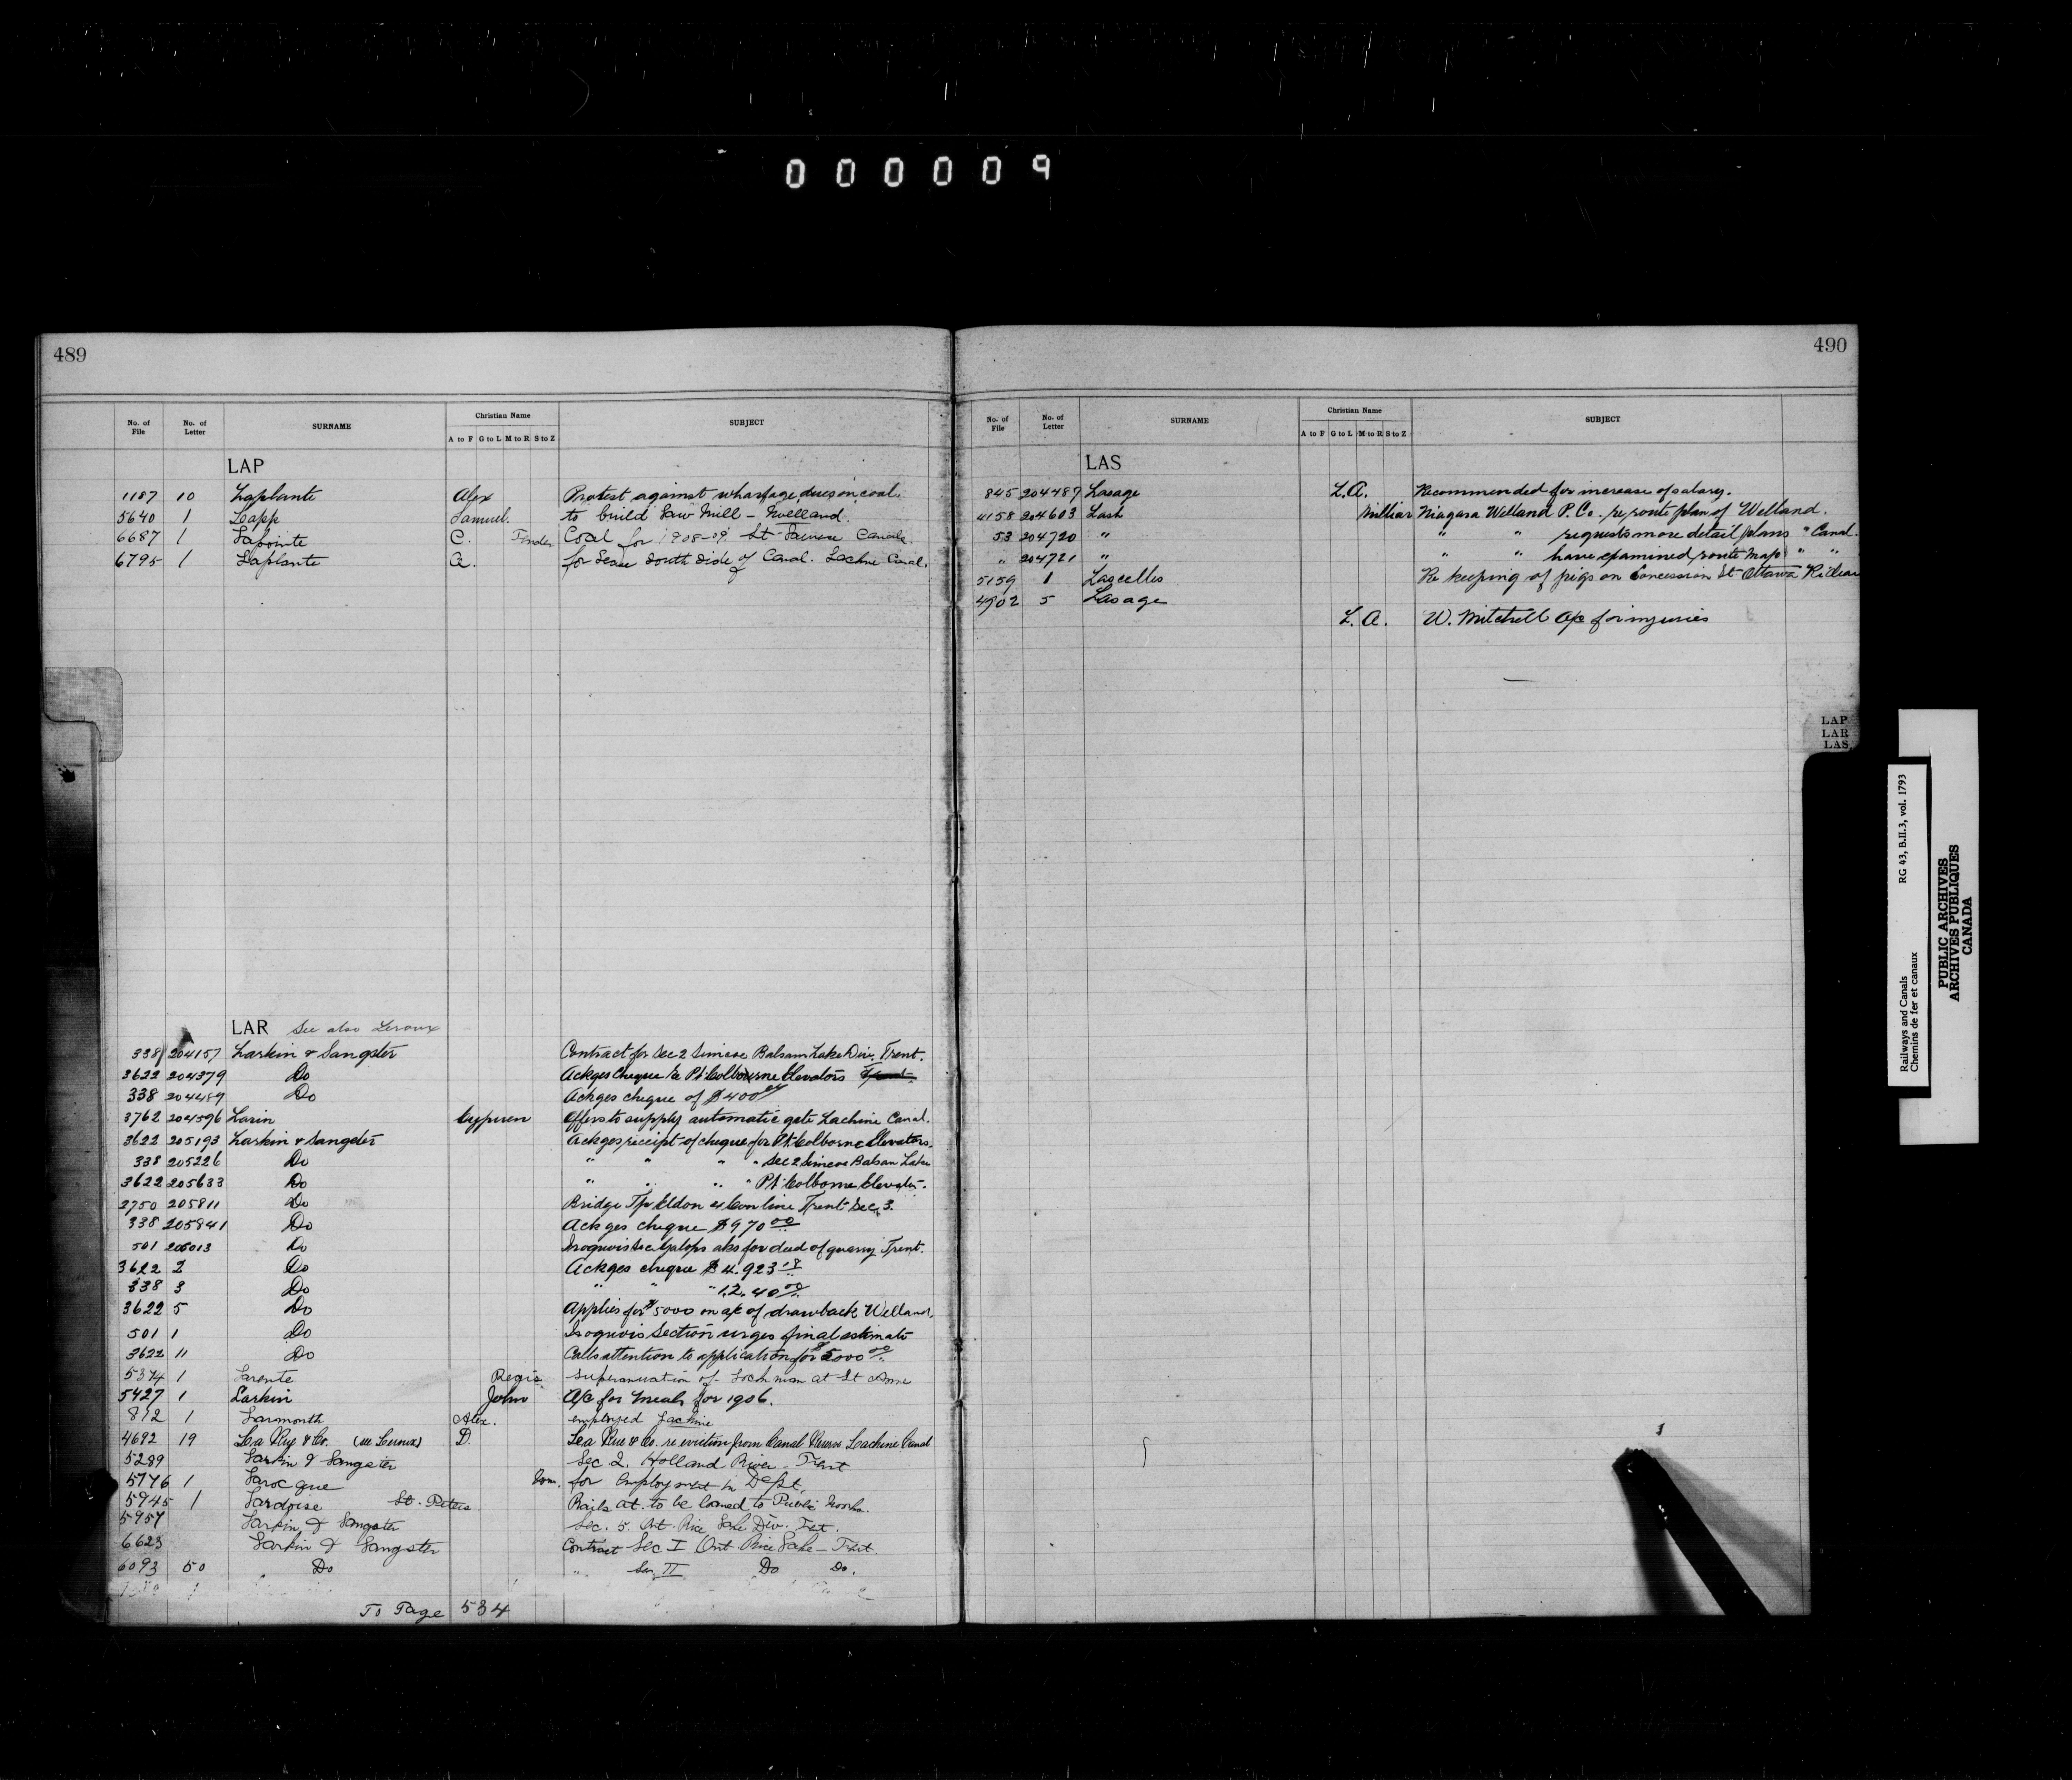 000009
489
No. of File No. of Letter SURNAME Christian Name A to F G to L M to R S to Z SUBJECT
LAP
1187 10 Laplante Alex Protest against wharfage dues on coal.
5640 1 Lapp Samuel. to build Saw Mill - Welland.
6687 1 Lapointe C. Tender Coal for 1908-09. St. Canals.
6795 1 Laplante A. for Lease South Side of Canal. Lachine Canal.
LAR See also Leroux
338 204157 Larkin & Sangster Contract for Sec 2 Simcoe Balsam Lake Div. Trent.
3622 204379 Do Ackges Cheque re Pt. Colbourne Elevators Trent.
338 204489 Do Ackges cheque of $400
3762 204596 Larin Cyprien Offers to supply automatic gate Lachine Canal.
3622 205193 Larkin & Sangster Ackges receipt of cheque for Pt. Colborne Elevators.
338 205226 Do " " " " Sec 2 Simcoe Balsam Lake
3622 205633 Do " " " " Pt. Colborne Elevator.
2750 205811 Do Bridge Tp Eldon & Con line Trent Sec. 3.
338 205841 Do Ackges cheque $970 00
501 206013 Do Iroquois Sec Galops aks for deed of quarry Trent.
3622 2 Do Ackges cheque $4.923 18
338 3 Do " " " 12,40 00
3622 5 Do Applies for $5000 on a/c of drawback Welland.
501 1 Do Iroquois Section urges final estimate
3622 11 Do Calls attention to application for $5000 00
5374 1 Larente Regis superannuation of Lockman at St Anne
5427 1 Larkin John A/c for meals for 1906.
812 1 Larmonth Alex. employed Lachine
4692 19 La Rue & Co. (see Leroux) D. La Rue & Co. re eviction from Canal Reserve Lachine Canal
5289 Larkin & Sangster Sec 2. Holland River - Trent
5776 1 Larocque for Employment in Dept.
5945 1 Lardoise St. Peters Rails at. to be loaned to Public Works.
5957 Larkin & Sangster Sec. 5. Ont. Rice Lake Div. Trt.
6623 Larkin & Sangster Contract Sec I Ont Rice Lake - Trent.
6093 50 Do " Sec. II Do Do.
To Page 534
490
No. of File No. of Letter SURNAME Christian Name A to F G to L M to R S to Z SUBJECT
LAS
845 204487 Lasage L.A. Recommended for increase of salary.
4158 204603 Lash Millar Niagara Welland P. Co. re route plan of Welland.
53 204720 " " " requests more detail plans " Canal.
" 204721 " " " have examined route map " "
5159 1 Lascelles Re keeping of pigs on Concession St Ottawa Rideau
4902 5 Lasage L.A. W. Mitchell A/c for injuries
LAP
LAR
LAS
Railways and Canals RG 43, B.II.3, vol. 1793
Chemins de fer et canaux
PUBLIC ARCHIVES
ARCHIVES PUBLIQUES
CANADA